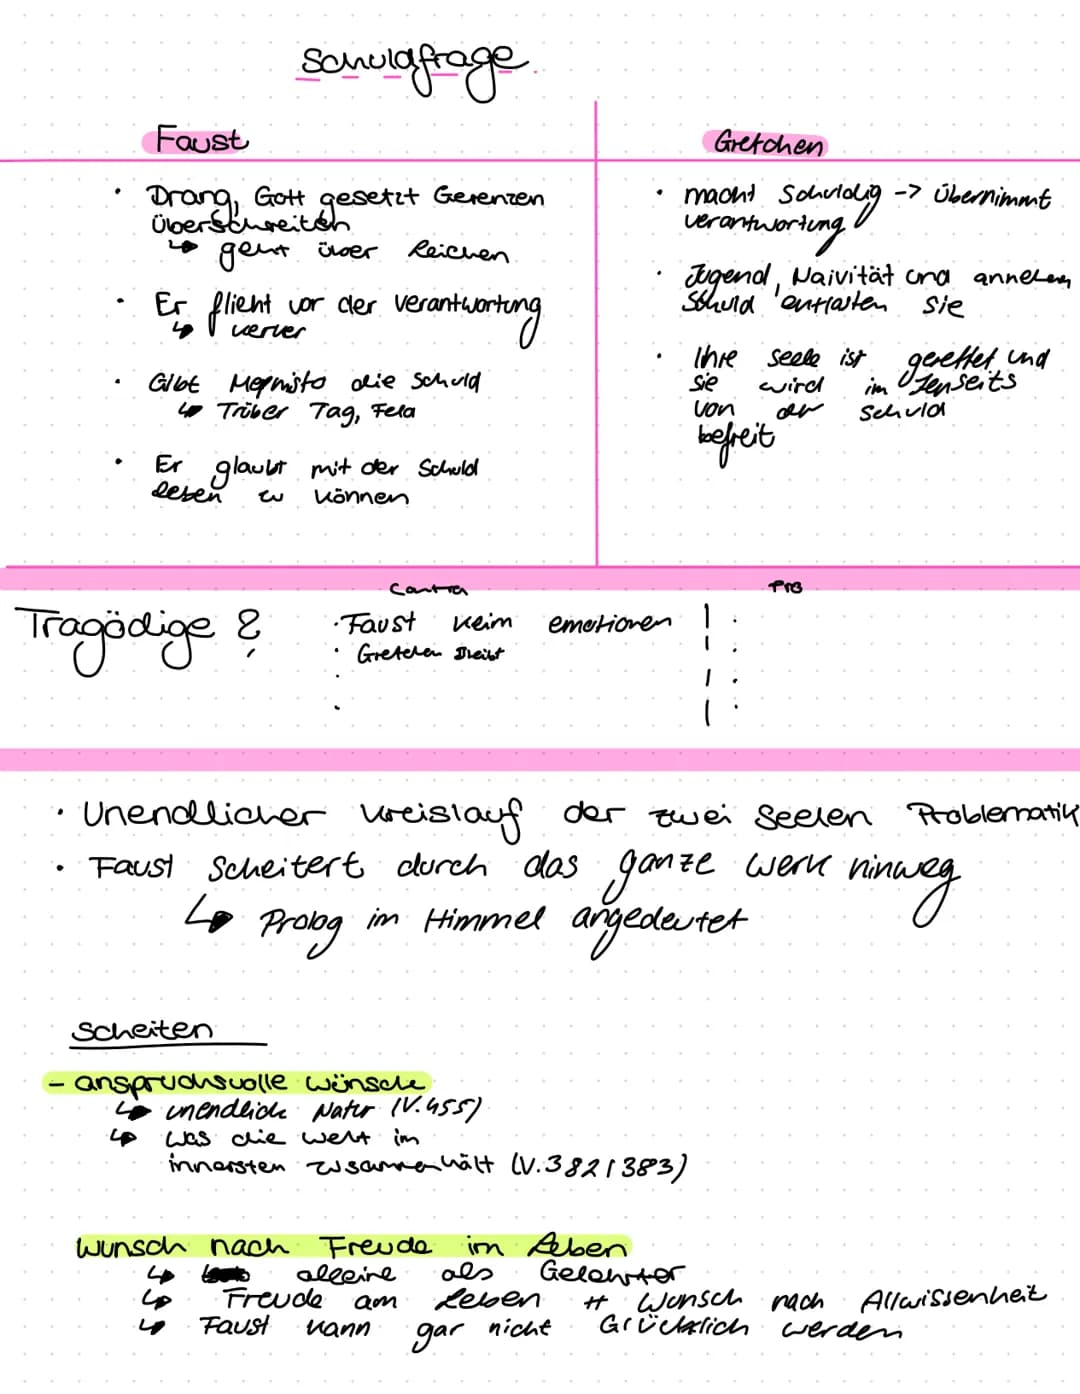 Schuldfrage
Faust
• Drang, Gott gesetzt Gerenzen
überschreiten
↳ geht über Leichen
• Er flieht vor der Verantwortung
↳ Kerker
• Gibt Mephisto die Schuld
↳ Trüber Tag, Feld
• Er glaubt mit der Schuld
leben zu können
Gretchen
• macht Schuldig -> übernimmt
verantwortung
• Jugend, Naivität und annehmen
Schuld entlasten sie
• Ihre Seele ist gerettet und
sie wird im Jenseits
von der Schuld
befreit
Tragödige ?
Contra
• Faust keim emotionen
• Gretchen bleibt
Pro
• Unendlicher Kreislauf der zwei Seelen Problematik
• Faust Scheitert durch das ganze Werk hinweg
↳ Prolog im Himmel angedeutet
Scheiten
- anspruchsvolle Wünsche
↳ unendliche Natur (V.455)
↳ Was die Welt im
innersten zusammenhält (V.3821383)
Wunsch nach Freude im Leben
↳ alleine als Gelehrter
↳ Freude am Leben # Wunsch nach Allwissenheit
↳ Faust kann gar nicht Glücklich werden